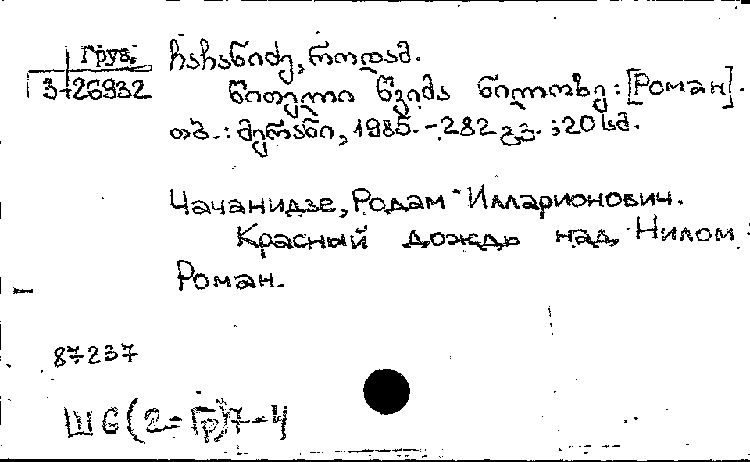 Груз.
3-26932
ჩაჩანიძე, როდამ.
წითელი წვიმა ნილოზე: [Роман].
თბ.: მერანი, 1985. - 282 გვ.; 20 სმ.
Чачанидзе, Родам Илларионович.
Красный дождь над Нилом:
Роман.
87237
Ш6(2=Гр)7-4